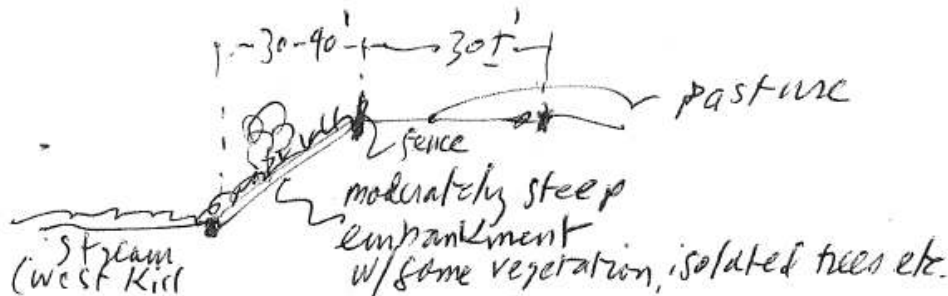 ~30-40' 30±'
pasture
fence
moderately steep
embankment
w/some vegetation, isolated trees etc.
Stream
(West Kill